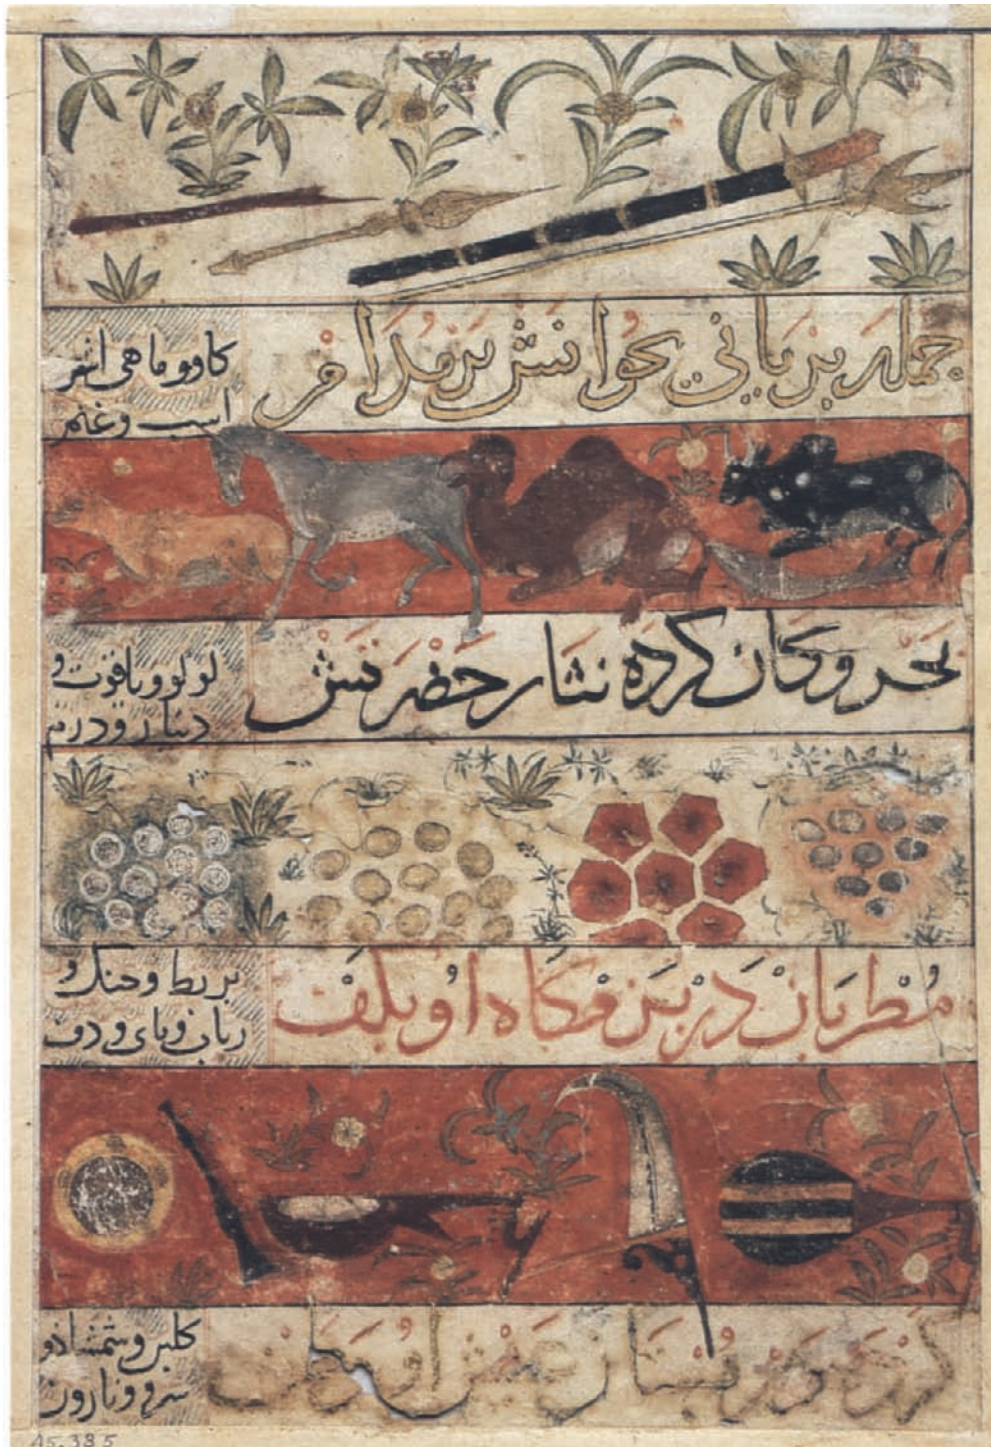 جمله بریانی بخوانش بر
کاو و ماهی اشتر
اسب و غنم
بحر و کان کرده نثار حضرتش
لولو و یاقوت و
دینار و درم
مطربان در بزمکاه او بکف
بربط و جنک و
رباب و نای و دف
در بستان عیش او
کلبن و شمشاد و
سرو و نارون
45.385